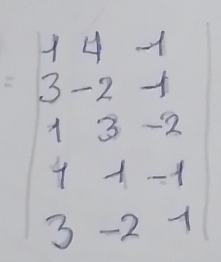 = | 1 4 -1 |
| 3 -2 1 |
| 1 3 -2 |
| 1 1 -1 |
| 3 -2 1 |